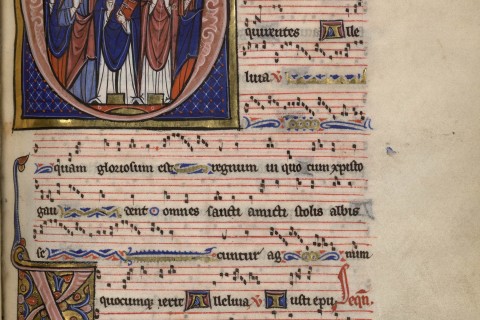 quirentes Alle
luia ℣
quam gloriosum est regnum in quo cum xpisto
gau dent omnes sancti amicti stolis albis
se cuntur ag num
quocumq; ierit Alleluia ℣ Iusti epu